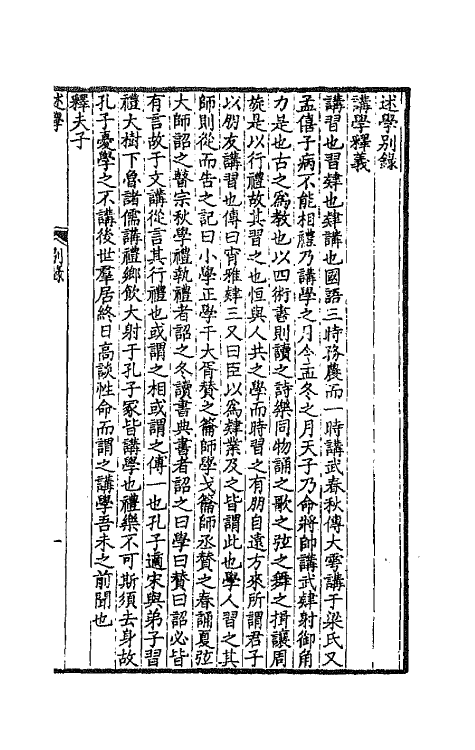 述學別錄
講學釋義
講習也習肄也肄講也國語三時務農而一時講武春秋傳大雩講于梁氏又
孟僖子病不能相禮乃講學之月令孟冬之月天子乃命將帥講武肄射御角
力是也古之爲教也以四術書則讀之詩樂同物誦之歌之弦之舞之揖讓周
旋是以行禮故其習之也恒與人共之學而時習之有朋自遠方來所謂君子
以朋友講習也傳曰宵雅肄三又曰臣以爲肄業及之皆謂此也學人習之其
師則從而告之記曰小學正學干大胥贊之籥師學戈籥師丞贊之春誦夏弦
大師詔之瞽宗秋學禮執禮者詔之冬讀書典書者詔之曰學曰贊曰詔必皆
有言故于文講從言其行禮也或謂之相或謂之傳一也孔子適宋與弟子習
禮大樹下魯諸儒講禮鄉飲大射于孔子冢皆講學也禮樂不可斯須去身故
孔子憂學之不講後世羣居終日高談性命而謂之講學吾未之前聞也
釋夫子
述學
別錄
一